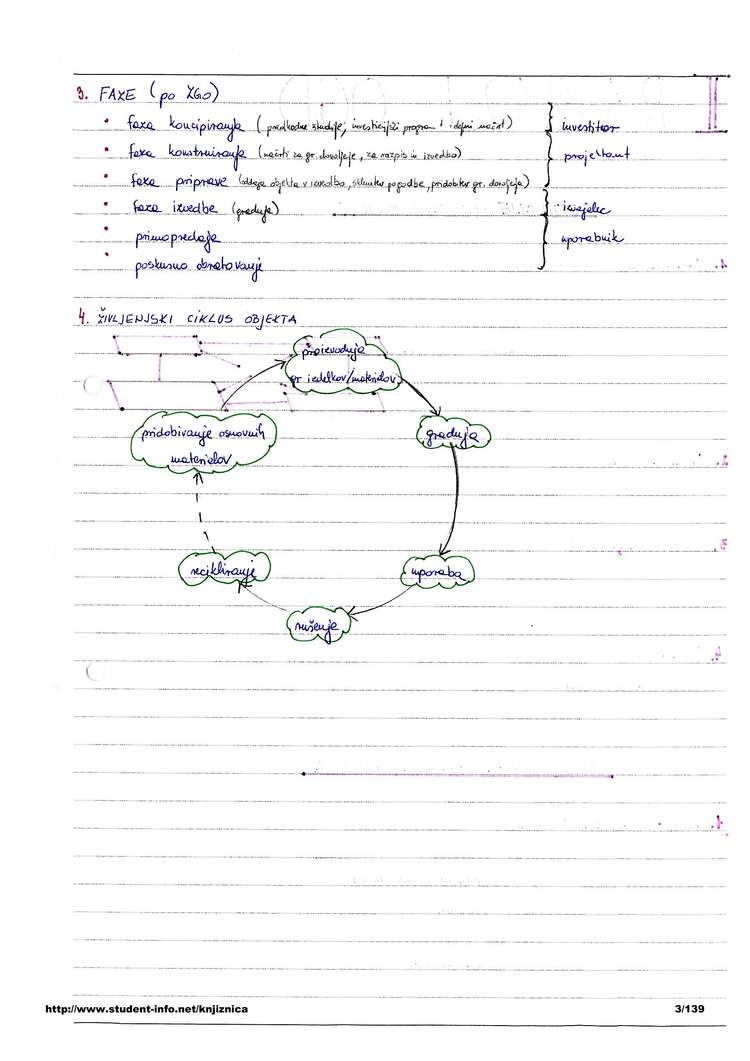 3. FAZE (po ZGO)
• faza koncipiranja (predhodne študije, investicijski program + idejni načrt)
investitor
• faza konstruiranja (načrti za gr. dovoljenje, za razpis in izvedbo)
projektant
• faza priprave (oddaja objekta v izvedbo, sklenitev pogodbe, pridobitev gr. dovoljenja)
• faza izvedbe (gradnja)
izvajalec
• primopredaja
uporabnik
• poskusno obratovanje
4. ŽIVLJENJSKI CIKLUS OBJEKTA
proizvodnja
gr. izdelkov/materialov
pridobivanje osnovnih
materialov
gradnja
recikliranje
uporaba
rušenje
http://www.student-info.net/knjiznica
3/139